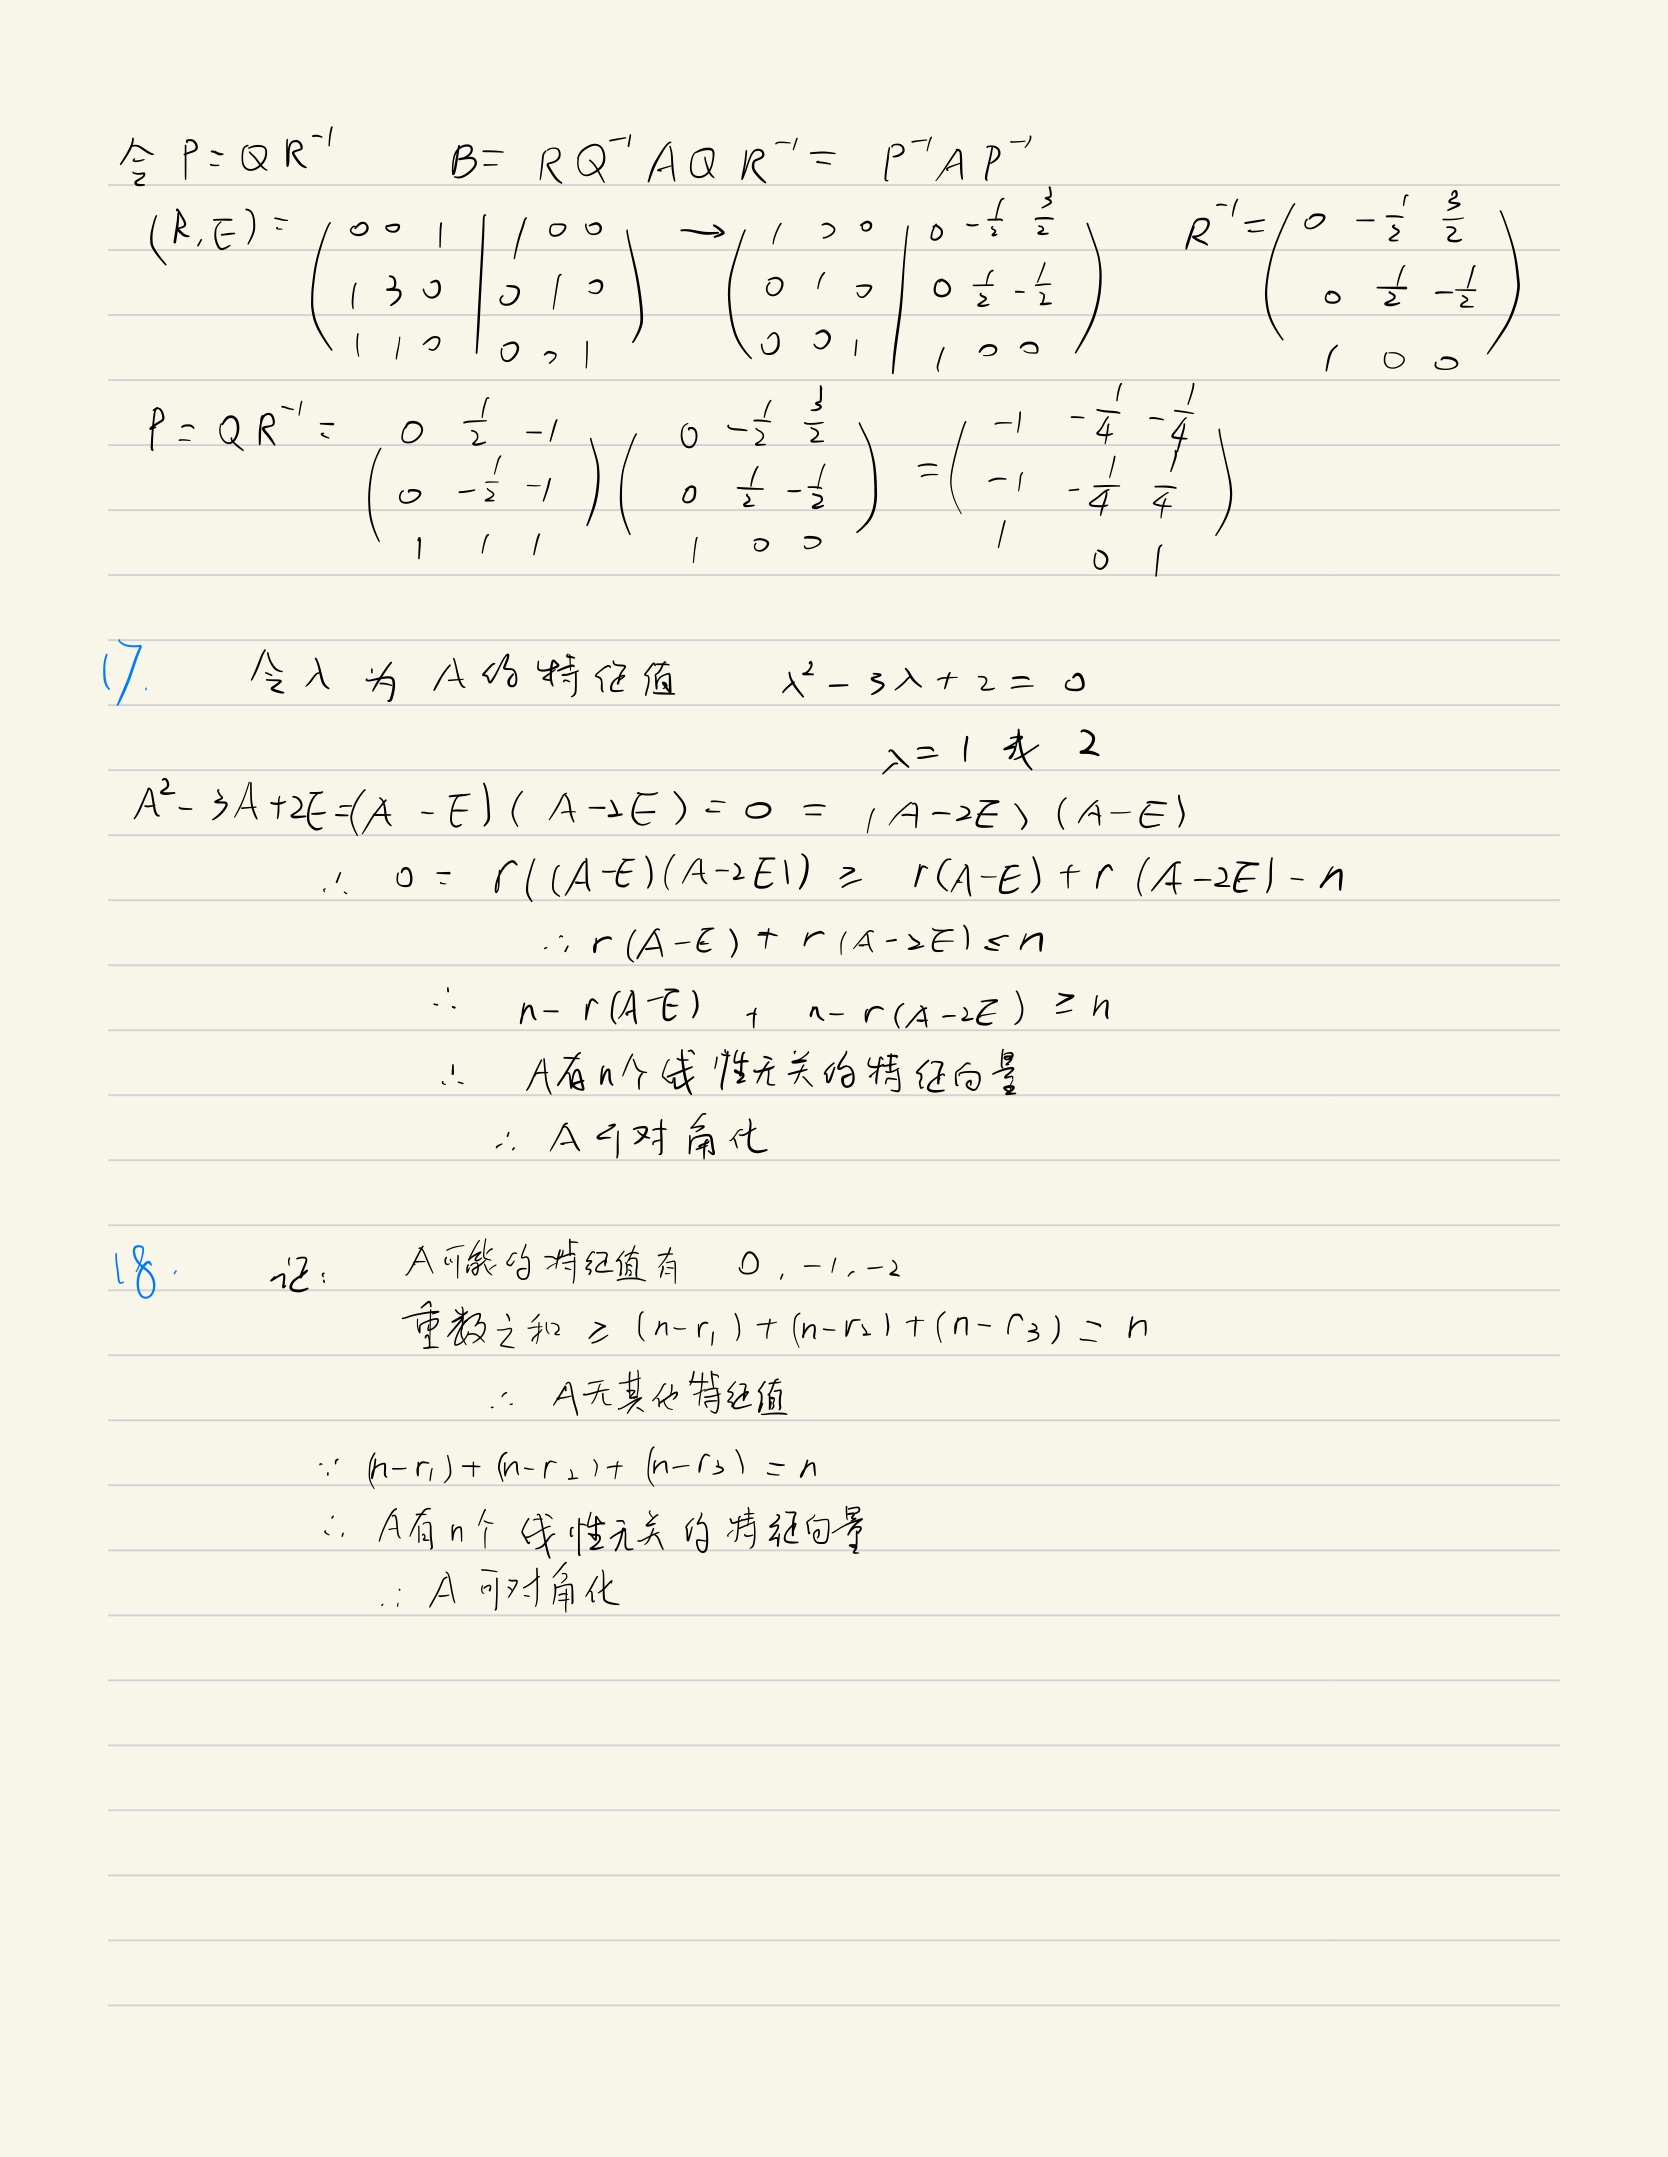 令 P=QR⁻¹ B= RQ⁻¹AQR⁻¹= P⁻¹AP⁻¹
(R,E)= (0 0 1 | 1 0 0 → (1 0 0 | 0 -1/2 3/2) R⁻¹=(0 -1/2 3/2
1 3 0 | 0 1 0 0 1 0 | 0 1/2 -1/2 0 1/2 -1/2
1 1 0 | 0 0 1) 0 0 1 | 1 0 0) 1 0 0)
P=QR⁻¹= (0 1/2 -1 (0 -1/2 3/2 =(-1 -1/4 -1/4
0 -1/2 -1 0 1/2 -1/2 -1 -1/4 1/4
1 1 1) 1 0 0) 1 0 1)
17. 令λ为A的特征值 λ²-3λ+2=0
λ=1或2
A²-3A+2E=(A-E)(A-2E)=0=(A-2E)(A-E)
∴ 0= r((A-E)(A-2E)) ≥ r(A-E)+r(A-2E)-n
∴ r(A-E)+r(A-2E)≤n
∴ n-r(A-E) + n-r(A-2E) ≥n
∴ A有n个线性无关的特征向量
∴ A可对角化
18. 记: A可能的特征值有 0,-1,-2
重数之和 ≥ (n-r₁)+(n-r₂)+(n-r₃)=n
∴ A无其他特征值
∵ (n-r₁)+(n-r₂)+(n-r₃)=n
∴ A有n个线性无关的特征向量
∴ A可对角化